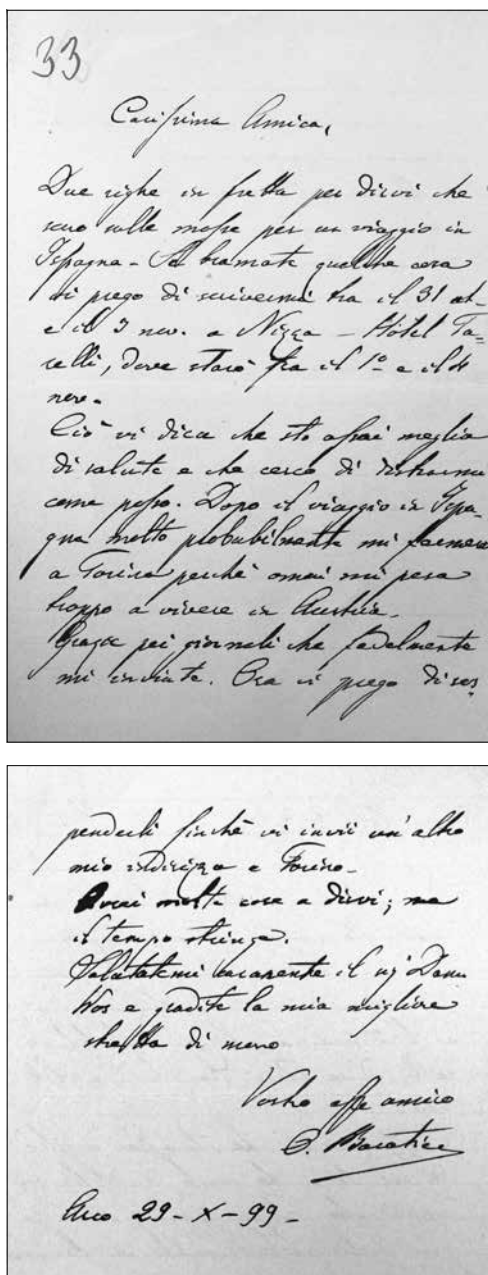 33
Carissima Amica,
Due righe in fretta per dirvi che
sono sulle mosse per un viaggio in
Ispagna - Se bramate qualche cosa
vi prego di scrivermi tra il 31 ott-
e il 3 nov. a Nizza - Hôtel
dove starò fra il 1º e il 4
nov.
Ciò vi dica che sto assai meglio
di salute e che cerco di distrarmi
come posso. Dopo il viaggio in Ispa-
gna molto probabilmente mi fermerò
a Torino perchè omai mi pesa
troppo a vivere in Austria.
Grazie pei giornali che fedelmente
mi inviate. Ora vi prego di sos-
penderli finchè vi invii un'altro
mio indirizzo a Torino-
Avrei molte cose a dirvi; ma
il tempo stringe.
Salutatemi caramente il
e gradite la mia migliore
stretta di mano
Vostro affe amico
O. Baratieri
Arco 29-X-99-